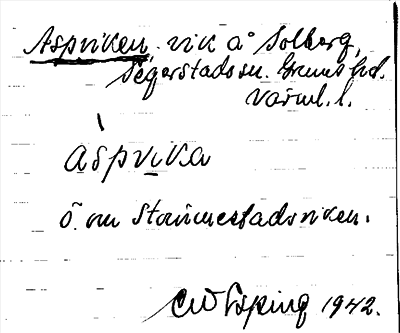 Aspviken. vik å Solberg,
Segerstads sn. Grums hd.
Värml. l.
àspvika
ö. om Stommestadsviken.
1942.